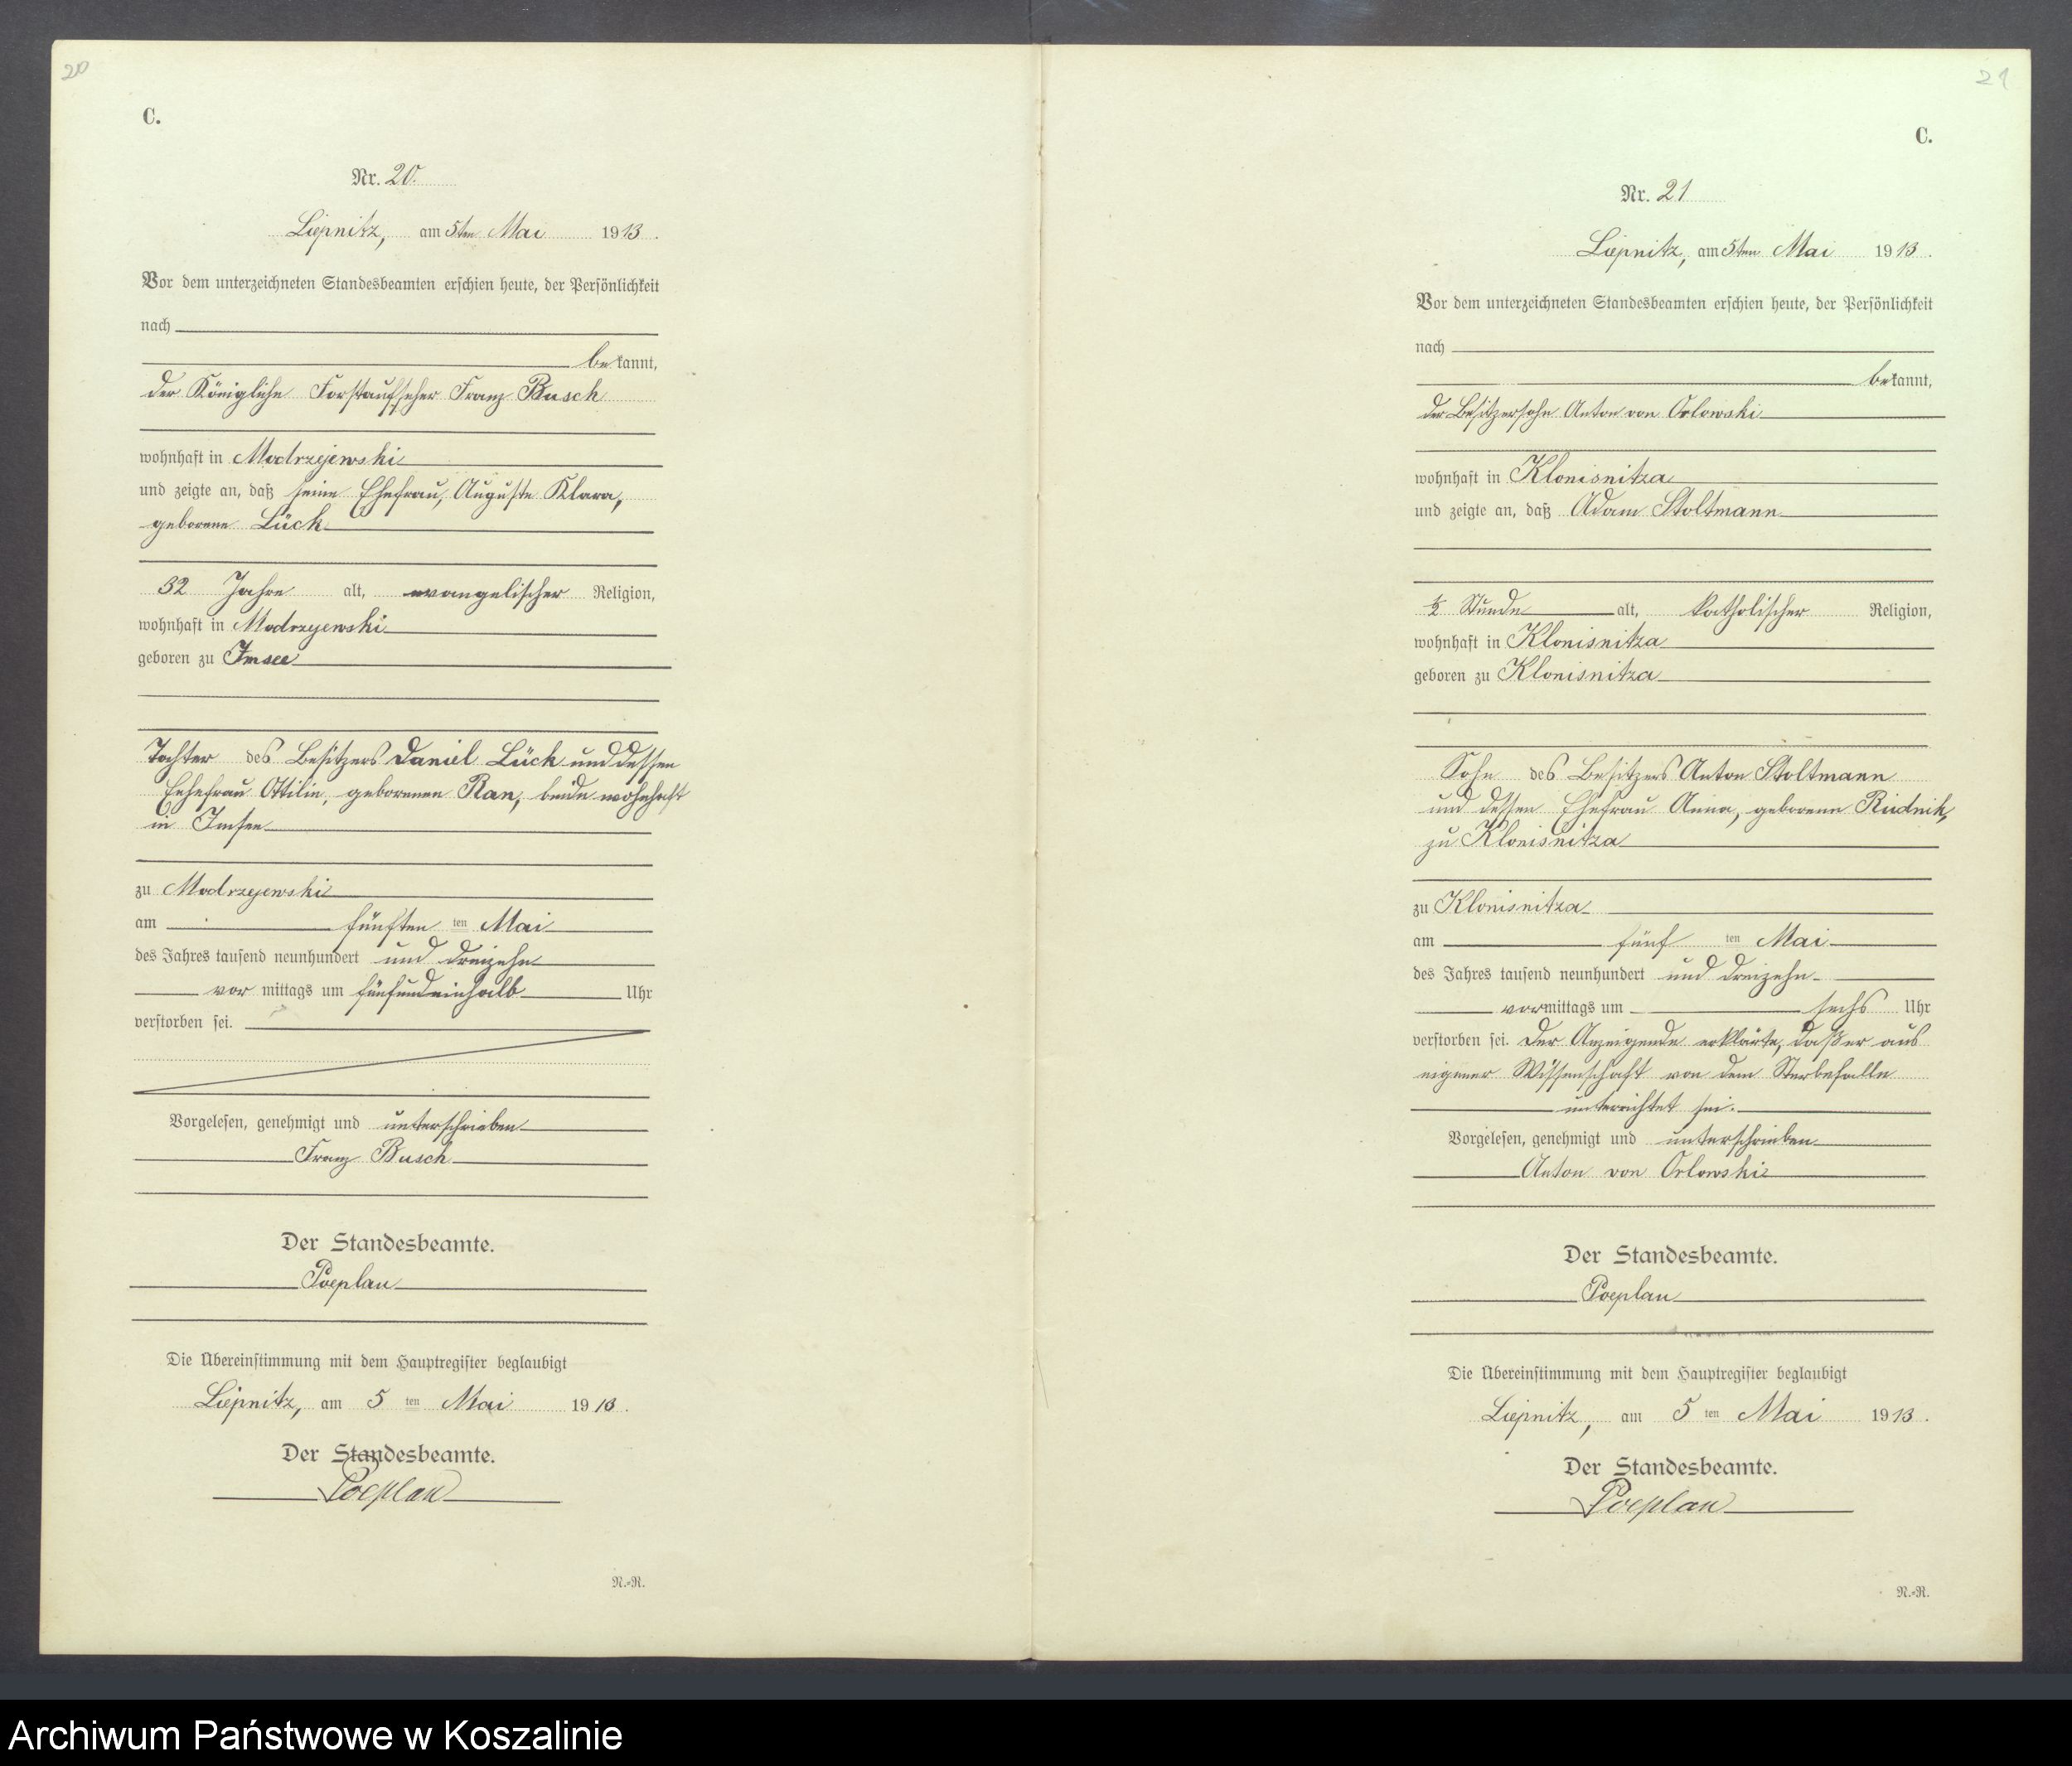 20
C.
Nr. 20.
Liepnitz, am 5ten Mai 1913.
Vor dem unterzeichneten Standesbeamten erschien heute, der Persönlichkeit
nach
bekannt,
der Königliche Forstaufseher Franz Busch
wohnhaft in Modrzejewski
und zeigte an, daß seine Ehefrau, Auguste Klara,
geborene Lück
32 Jahre alt, evangelischer Religion,
wohnhaft in Modrzejewski
geboren zu Imsee
Tochter des Besitzers Daniel Lück und dessen
Ehefrau Ottilie, geborenen Ran, beide wohnhaft
in Imsee
zu Modrzejewski
am fünften ten Mai
des Jahres tausend neunhundert und dreizehn
vor mittags um fünfundeinhalb Uhr
verstorben sei.
Vorgelesen, genehmigt und unterschrieben
Franz Busch
Der Standesbeamte.
Poeplau
Die Übereinstimmung mit dem Hauptregister beglaubigt
Liepnitz, am 5 ten Mai 1913.
Der Standesbeamte.
Poeplau
N.-R.
21
C.
Nr. 21
Liepnitz, am 5ten Mai 1913.
Vor dem unterzeichneten Standesbeamten erschien heute, der Persönlichkeit
nach
bekannt,
der Besitzersohn Anton von Orlowski
wohnhaft in Klonisnitza
und zeigte an, daß Adam Stoltmann
½ Stunde alt, katholischer Religion,
wohnhaft in Klonisnitza
geboren zu Klonisnitza
Sohn des Besitzers Anton Stoltmann
und dessen Ehefrau Anna, geborene Rudnik,
zu Klonisnitza
zu Klonisnitza
am fünf ten Mai
des Jahres tausend neunhundert und dreizehn
vormittags um sechs Uhr
verstorben sei. Der Anzeigende erklärte, daß er aus
eigener Wissenschaft von dem Sterbefalle
unterrichtet sei.
Vorgelesen, genehmigt und unterschrieben
Anton von Orlowski
Der Standesbeamte.
Poeplau
Die Übereinstimmung mit dem Hauptregister beglaubigt
Liepnitz, am 5 ten Mai 1913.
Der Standesbeamte.
Poeplau
N.-R.
Archiwum Państwowe w Koszalinie